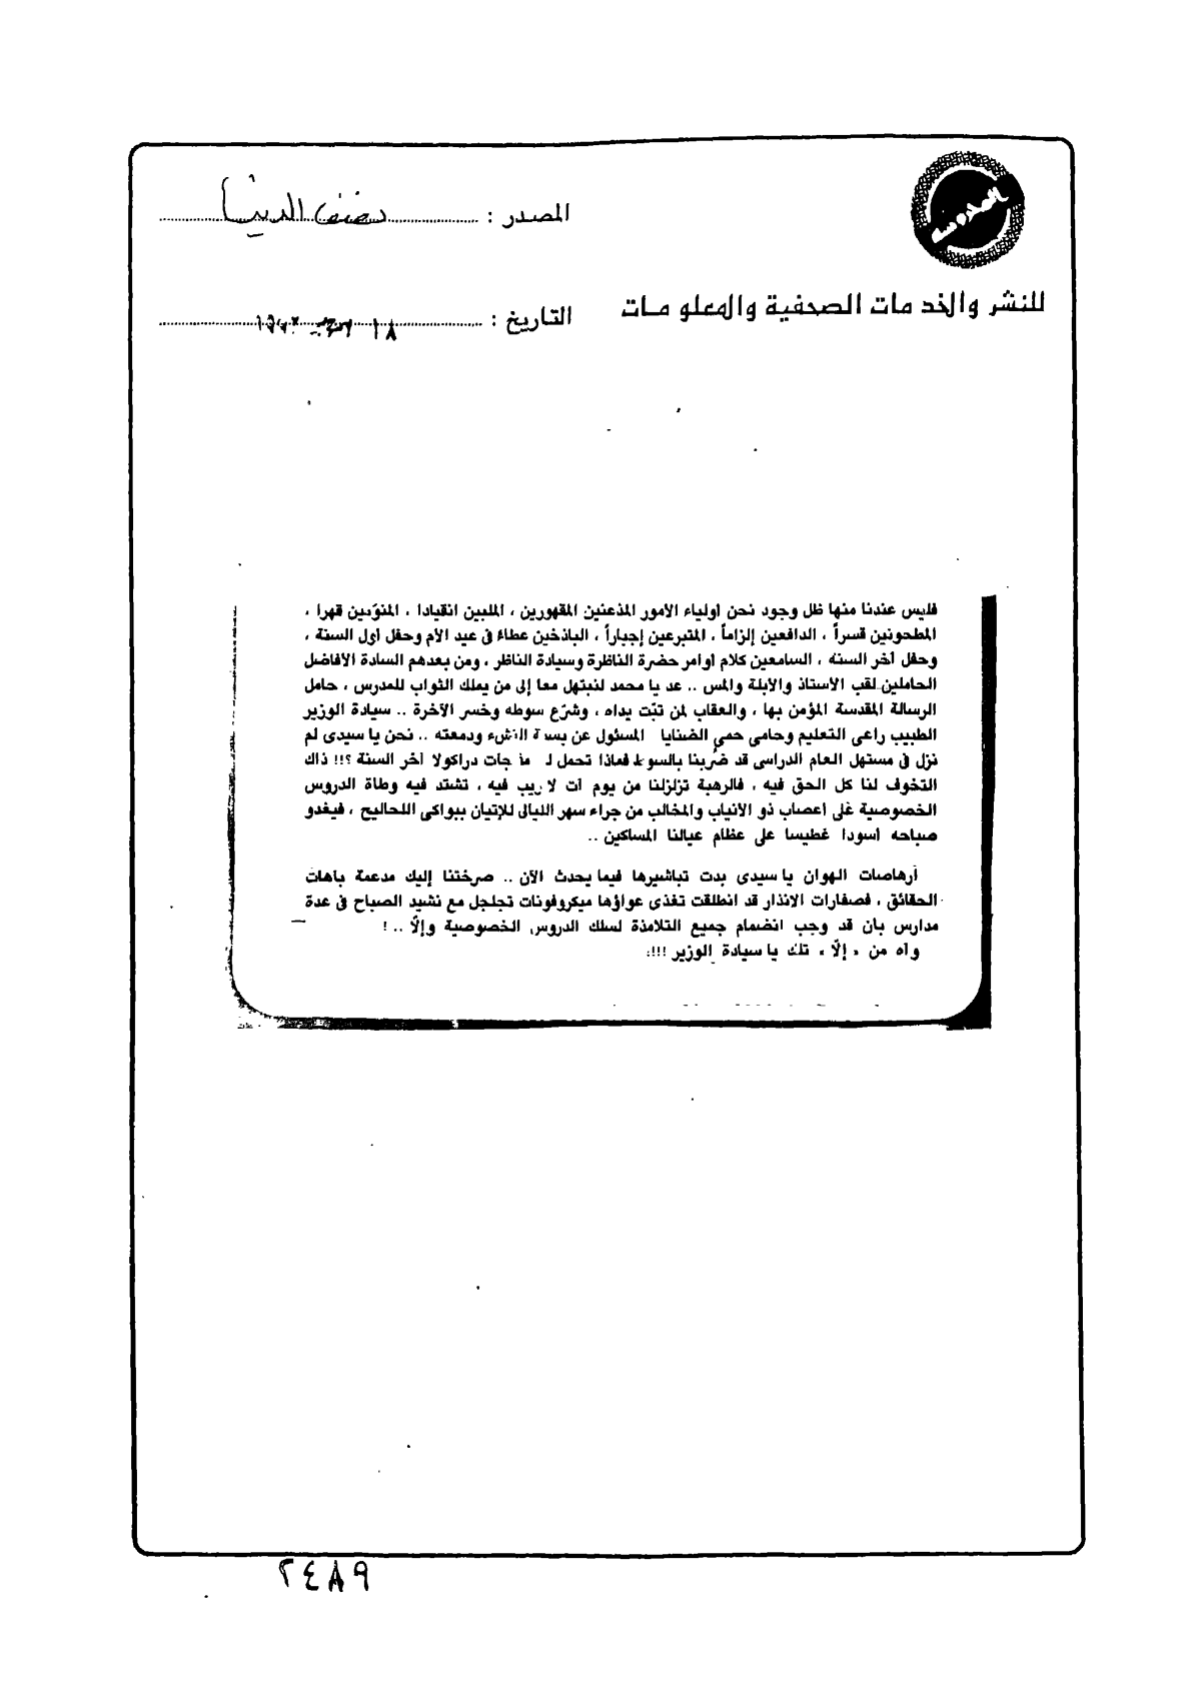 المصدر : نصف الدنيا
للنشر والخدمات الصحفية والمعلومات
التاريخ : ١٨
فليس عندنا منها ظل وجود نحن أولياء الأمور المذعنين المقهورين ، الملبين انقيادا ، المنوّمين قهرا ،
المطحونين قسراً ، الدافعين إلزاماً ، المتبرعين إجباراً ، الباذخين عطاءً فى عيد الأم وحفل أول السنة ،
وحفل آخر السنة ، السامعين كلام أوامر حضرة الناظرة وسيادة الناظر ، ومن بعدهم السادة الأفاضل
الحاملين لقب الأستاذ والأبلة والمس .. عد يا محمد لنبتهل معا إلى من يملك الثواب للمدرس ، حامل
الرسالة المقدسة المؤمن بها ، والعقاب لمن تبّت يداه ، وشرّع سوطه وخسر الآخرة .. سيادة الوزير
الطبيب راعى التعليم وحامى حمى الضنايا المسئول عن بسمة النشء ودمعته .. نحن يا سيدى لم
نزل فى مستهل العام الدراسى قد ضُربنا بالسوط فماذا تحمل لـ جات دراكولا آخر السنة ؟!! ذاك
التخوف لنا كل الحق فيه ، فالرهبة تزلزلنا من يوم آت لا ريب فيه ، تشتد فيه وطأة الدروس
الخصوصية على أعصاب ذو الأنياب والمخالب من جراء سهر الليالى للإتيان ببواكى اللحاليح ، فيغدو
صباحه أسودا غطيسا على عظام عيالنا المساكين ..
أرهاصات الهوان يا سيدى بدت تباشيرها فيما يحدث الآن .. صرختنا إليك مدعمة بآهات
الحقائق ، فصفارات الانذار قد انطلقت تغذى عواؤها ميكروفونات تجلجل مع نشيد الصباح فى عدة
مدارس بأن قد وجب انضمام جميع التلامذة لسلك الدروس الخصوصية وإلاّ .. !
وآه من « إلاّ » تلك يا سيادة الوزير !!!
٢٤٨٩